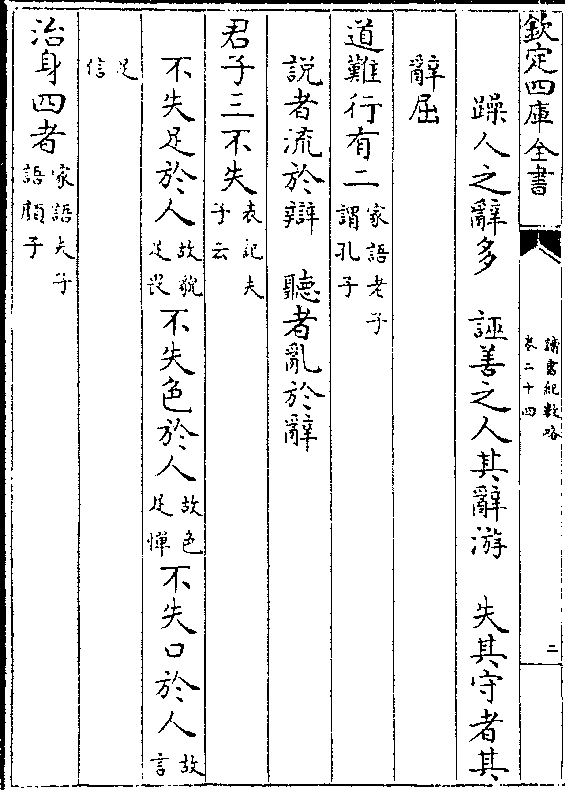 欽定四庫全書
讀書紀數略
卷二十四
二
躁人之辭多　誣善之人其辭游　失其守者其
辭屈
道難行有二家語老子謂孔子
說者流於辯　聽者亂於辭
君子三不失表記夫子云
不失足於人故貌足畏不失色於人故色足憚不失口於人故言
足信
治身四者家語夫子語顏子